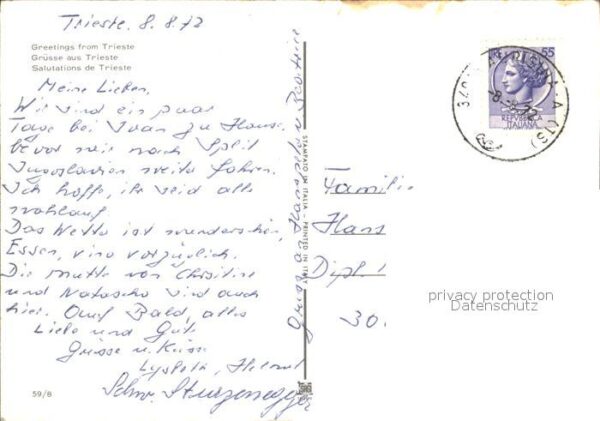 Trieste. 8.8.72
Greetings from Trieste
Grüsse aus Trieste
Salutations de Trieste
Meine Lieben,
Wir sind ein paar
Tage bei Ivan zu Hause.
bevor wir nach Split
Jugoslavien weiter fahren.
Ich hoffe, ihr seid alle
wohlauf.
Das Wetter ist wunderschön,
Essen, vino vorzüglich.
Die Mutter von Christine
und Natascha sind auch
hier. Auf Bald, alles
Liebe und Gute
Grüsse u. Küsse
Helmut
Schw. Sturzenegger
59/8
Gruss an Hanspeter u.
STAMPATO IN ITALIA - PRINTED IN ITALY
55
REPVBBLICA
ITALIANA
(TS)
Familie
Hans
Dipl.
30.
privacy protection
Datenschutz